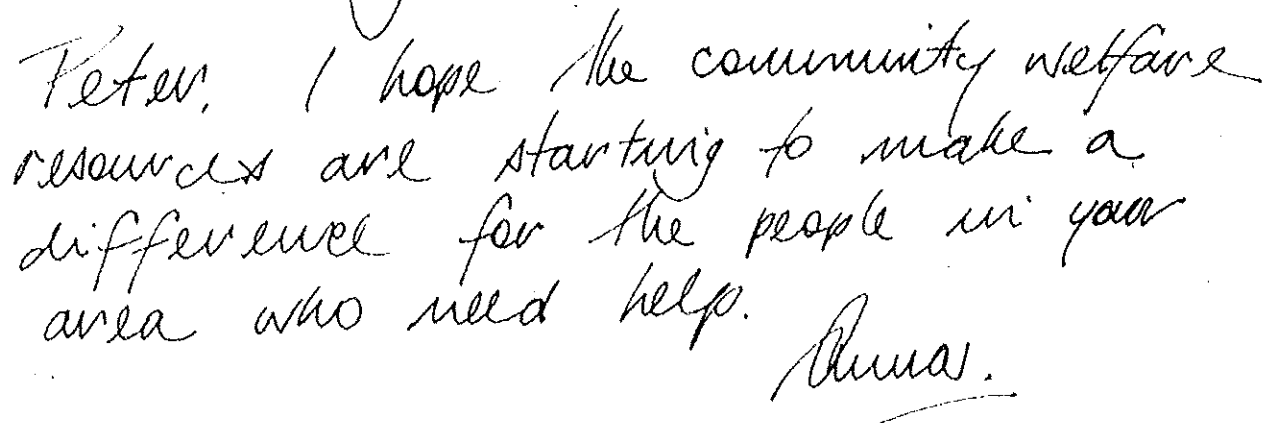 Peter, I hope the community welfare
resources are starting to make a
difference for the people in your
area who need help.